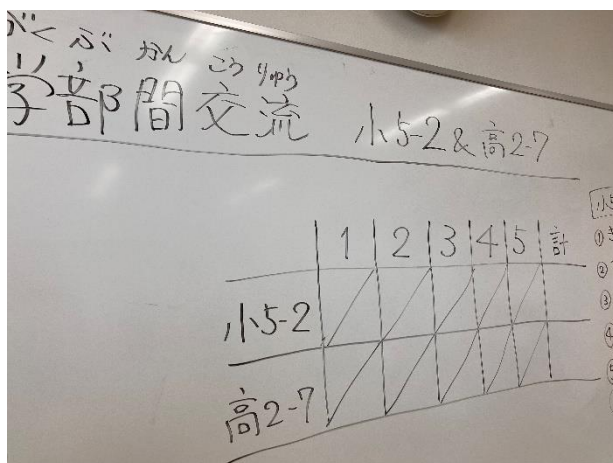 がくぶかんこうりゅう
学部間交流 小5-2&高2-7
1 2 3 4 5 計
小5-2
高2-7
小5
①
②
③
④
⑤